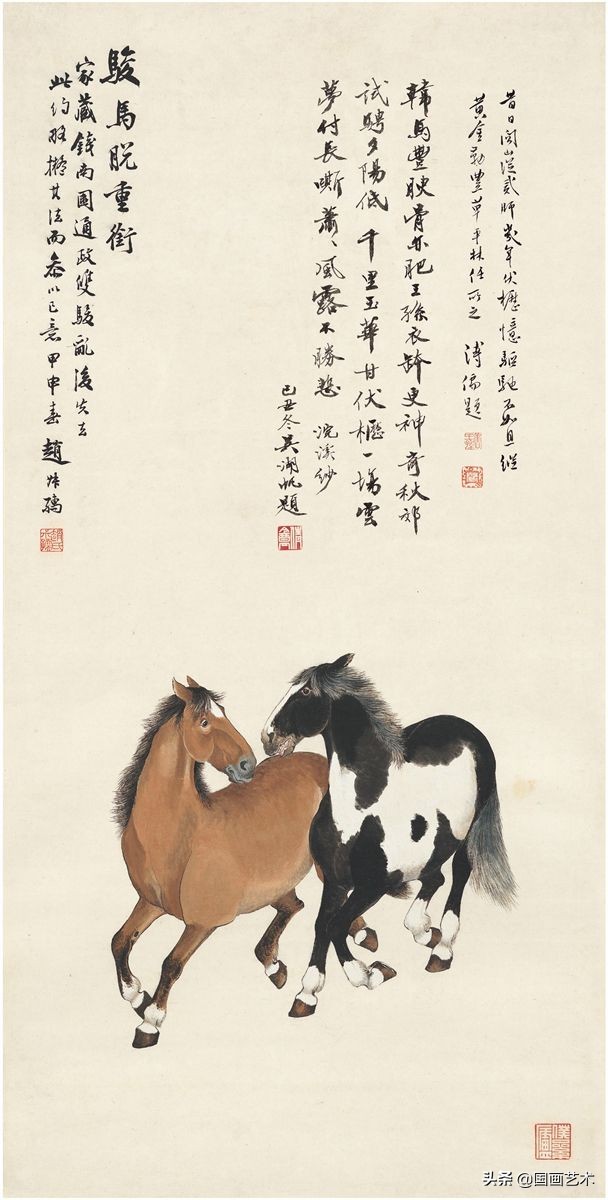 昔日關山從貳師幾年伏櫪憶驅馳不如且縱
黃金勒豐草平林任所之 溥儒題
韓馬豐腴骨亦肥王孫衣缽更神奇秋郊
試騁夕陽低 千里玉華甘伏櫪一場雲
夢付長嘶蕭〻風露不勝悲 浣溪紗
己丑冬吳湖帆題
駿馬脫重銜
家藏錢南園通政雙駿亂後失去
此約略擬其法而參以己意甲申春 趙叔孺
头条 @国画艺术